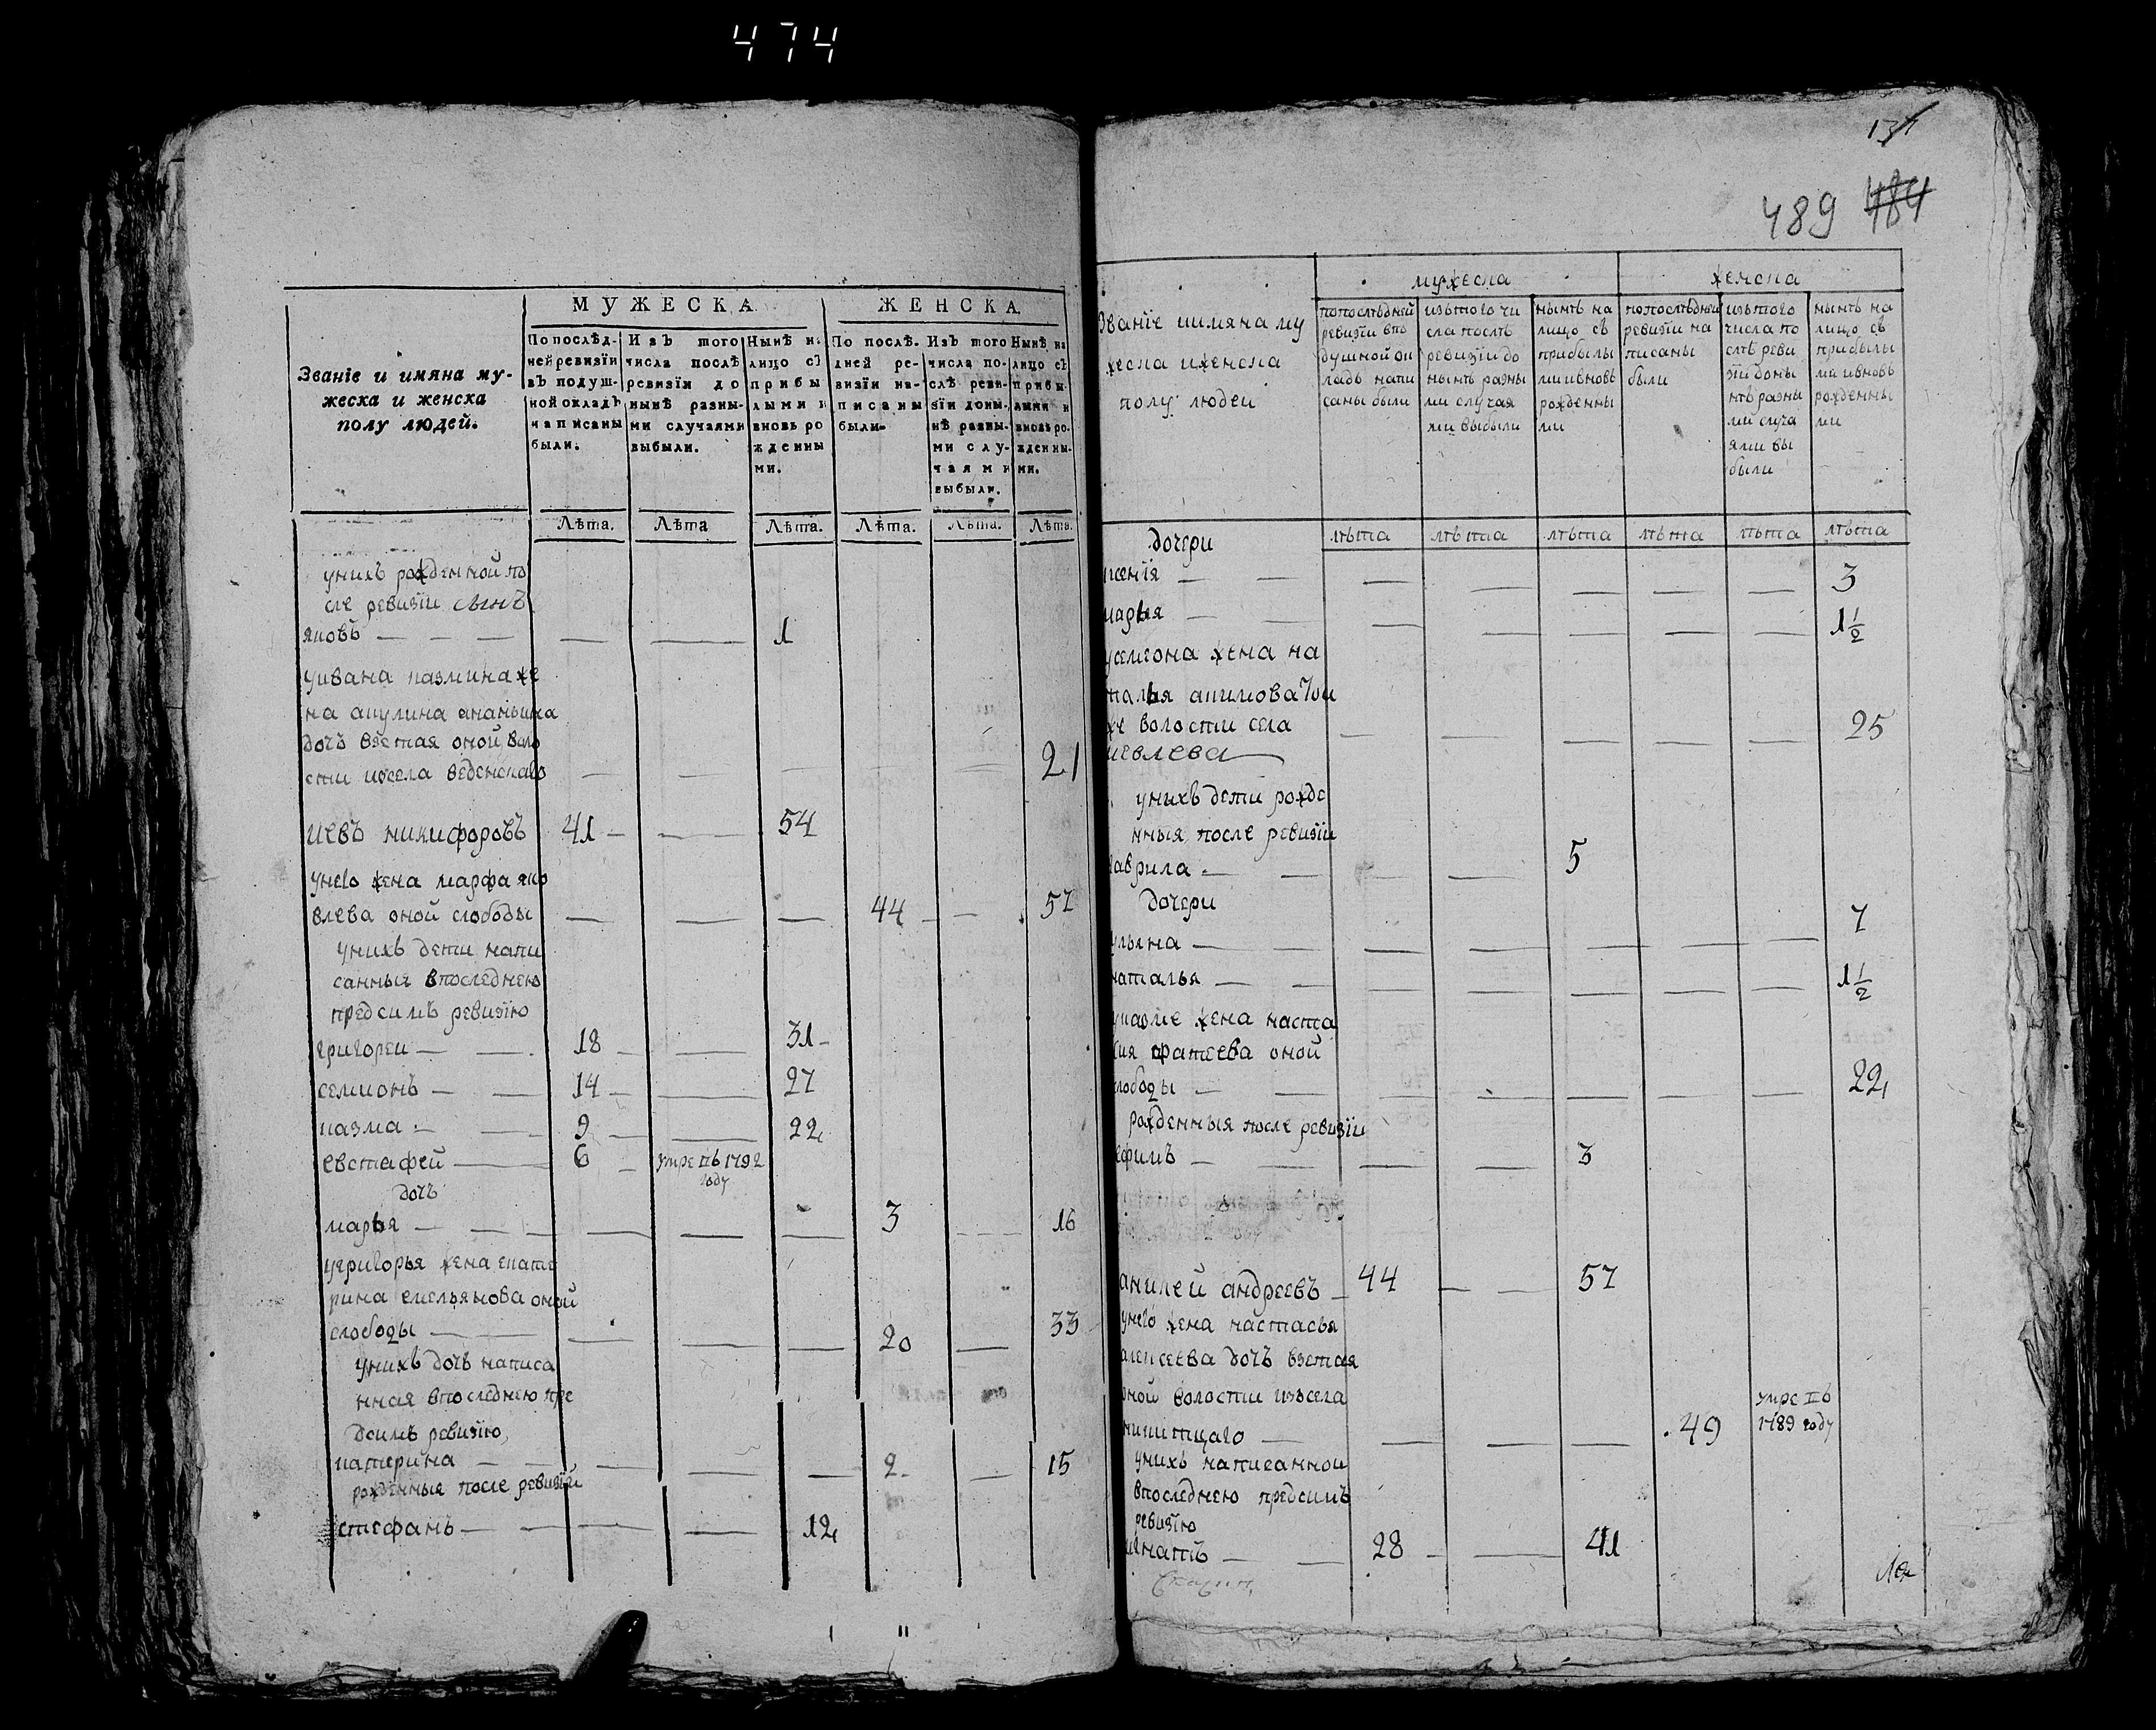 474
МУЖЕСКА
ЖЕНСКА
Званіе и имяна му-
жеска и женска
полу людей.
По послѣд-
ней ревизіи
въ подуш-
ной окладъ
написаны
были.
Изъ того
числа послѣ
ревизіи до
нынѣ разны-
ми случаями
выбыли.
Нынѣ н
лицо съ
прибы
лыми и
вновь ро
жденны
ми.
По послѣ-
дней ре-
визіи на-
писаны
были.
Изъ того
числа по-
слѣ реви-
зіи доны-
нѣ разны-
ми слу-
чаями
выбыли.
Нынѣ на
лицо съ
прибы
лыми и
вновь ро-
жденны-
ми.
Лѣта. Лѣта Лѣта. Лѣта. Лѣта. Лѣта.
унихъ рожденной по
сле ревизіи сынъ
яковъ — — — — — 1
уивана казмина же
на акулина ананьина
дочь взетая оной воло
сти исела веденскаго — — — — — 21
иевъ никифоровъ 41 — — 54
унего жена марфа яко
влева оной слободы — — — 44 — 57
унихъ дети напи
санныя впоследнею
предсимъ ревизію
григореи — — 18 — — 31
семионъ — — 14 — — 27
казма — — 9 — — 22
евстафей — 6 — умре въ 1792
году
дочь
марья — — — — — 3 — 16
угригорья жена екате
рина емельянова оной
слободы — — — — 20 — 33
унихъ дочь написа
нная впоследнею пре
дсимъ ревизію
катерина — — — — — 2 — 15
рожденныя после ревизіи
стефанъ — — — — 12
137
489 484
званіе иимяна му
жеска иженска
полу людеи
мужеска
женска
попоследней
ревизіи впо
душной ок
ладъ напи
саны были
изътого чи
сла послѣ
ревизіи до
нынѣ разны
ми случая
ми выбыли
нынѣ на
лицо съ
прибылы
ми ивновь
рожденны
ми
попоследней
ревизіи на
писаны
были
изътого
числа по
слѣ реви
зіи доны
нѣ разны
ми случа
ями вы
были
нынѣ на
лицо съ
прибылы
ми ивновь
рожденны
ми
лѣта лѣта лѣта лѣта лѣта лѣта
дочери
ксенія — — — — — — — 3
марья — — — — — — 1 1/2
усемиона жена на
талья акимова той
же волости села
— — — — — 25
унихъ дети рожде
нныя после ревизіи
гаврила — — — — 5
дочери
ульяна — — — — — — — 7
наталья — — — — — — — 1 1/2
указме жена наста
сия фатеева оной
слободы — — — — — — — 22
рожденныя после ревизіи
ефимъ — — — — 3
андреевъ — 44 — — 57
унего жена настасья
алексеева дочь взетая
оной волости изъсела
никитцаго — — — — 49 умре въ
1789 году
унихъ написанной
впоследнею предсимъ
ревизію
игнатъ — — 28 — — 41